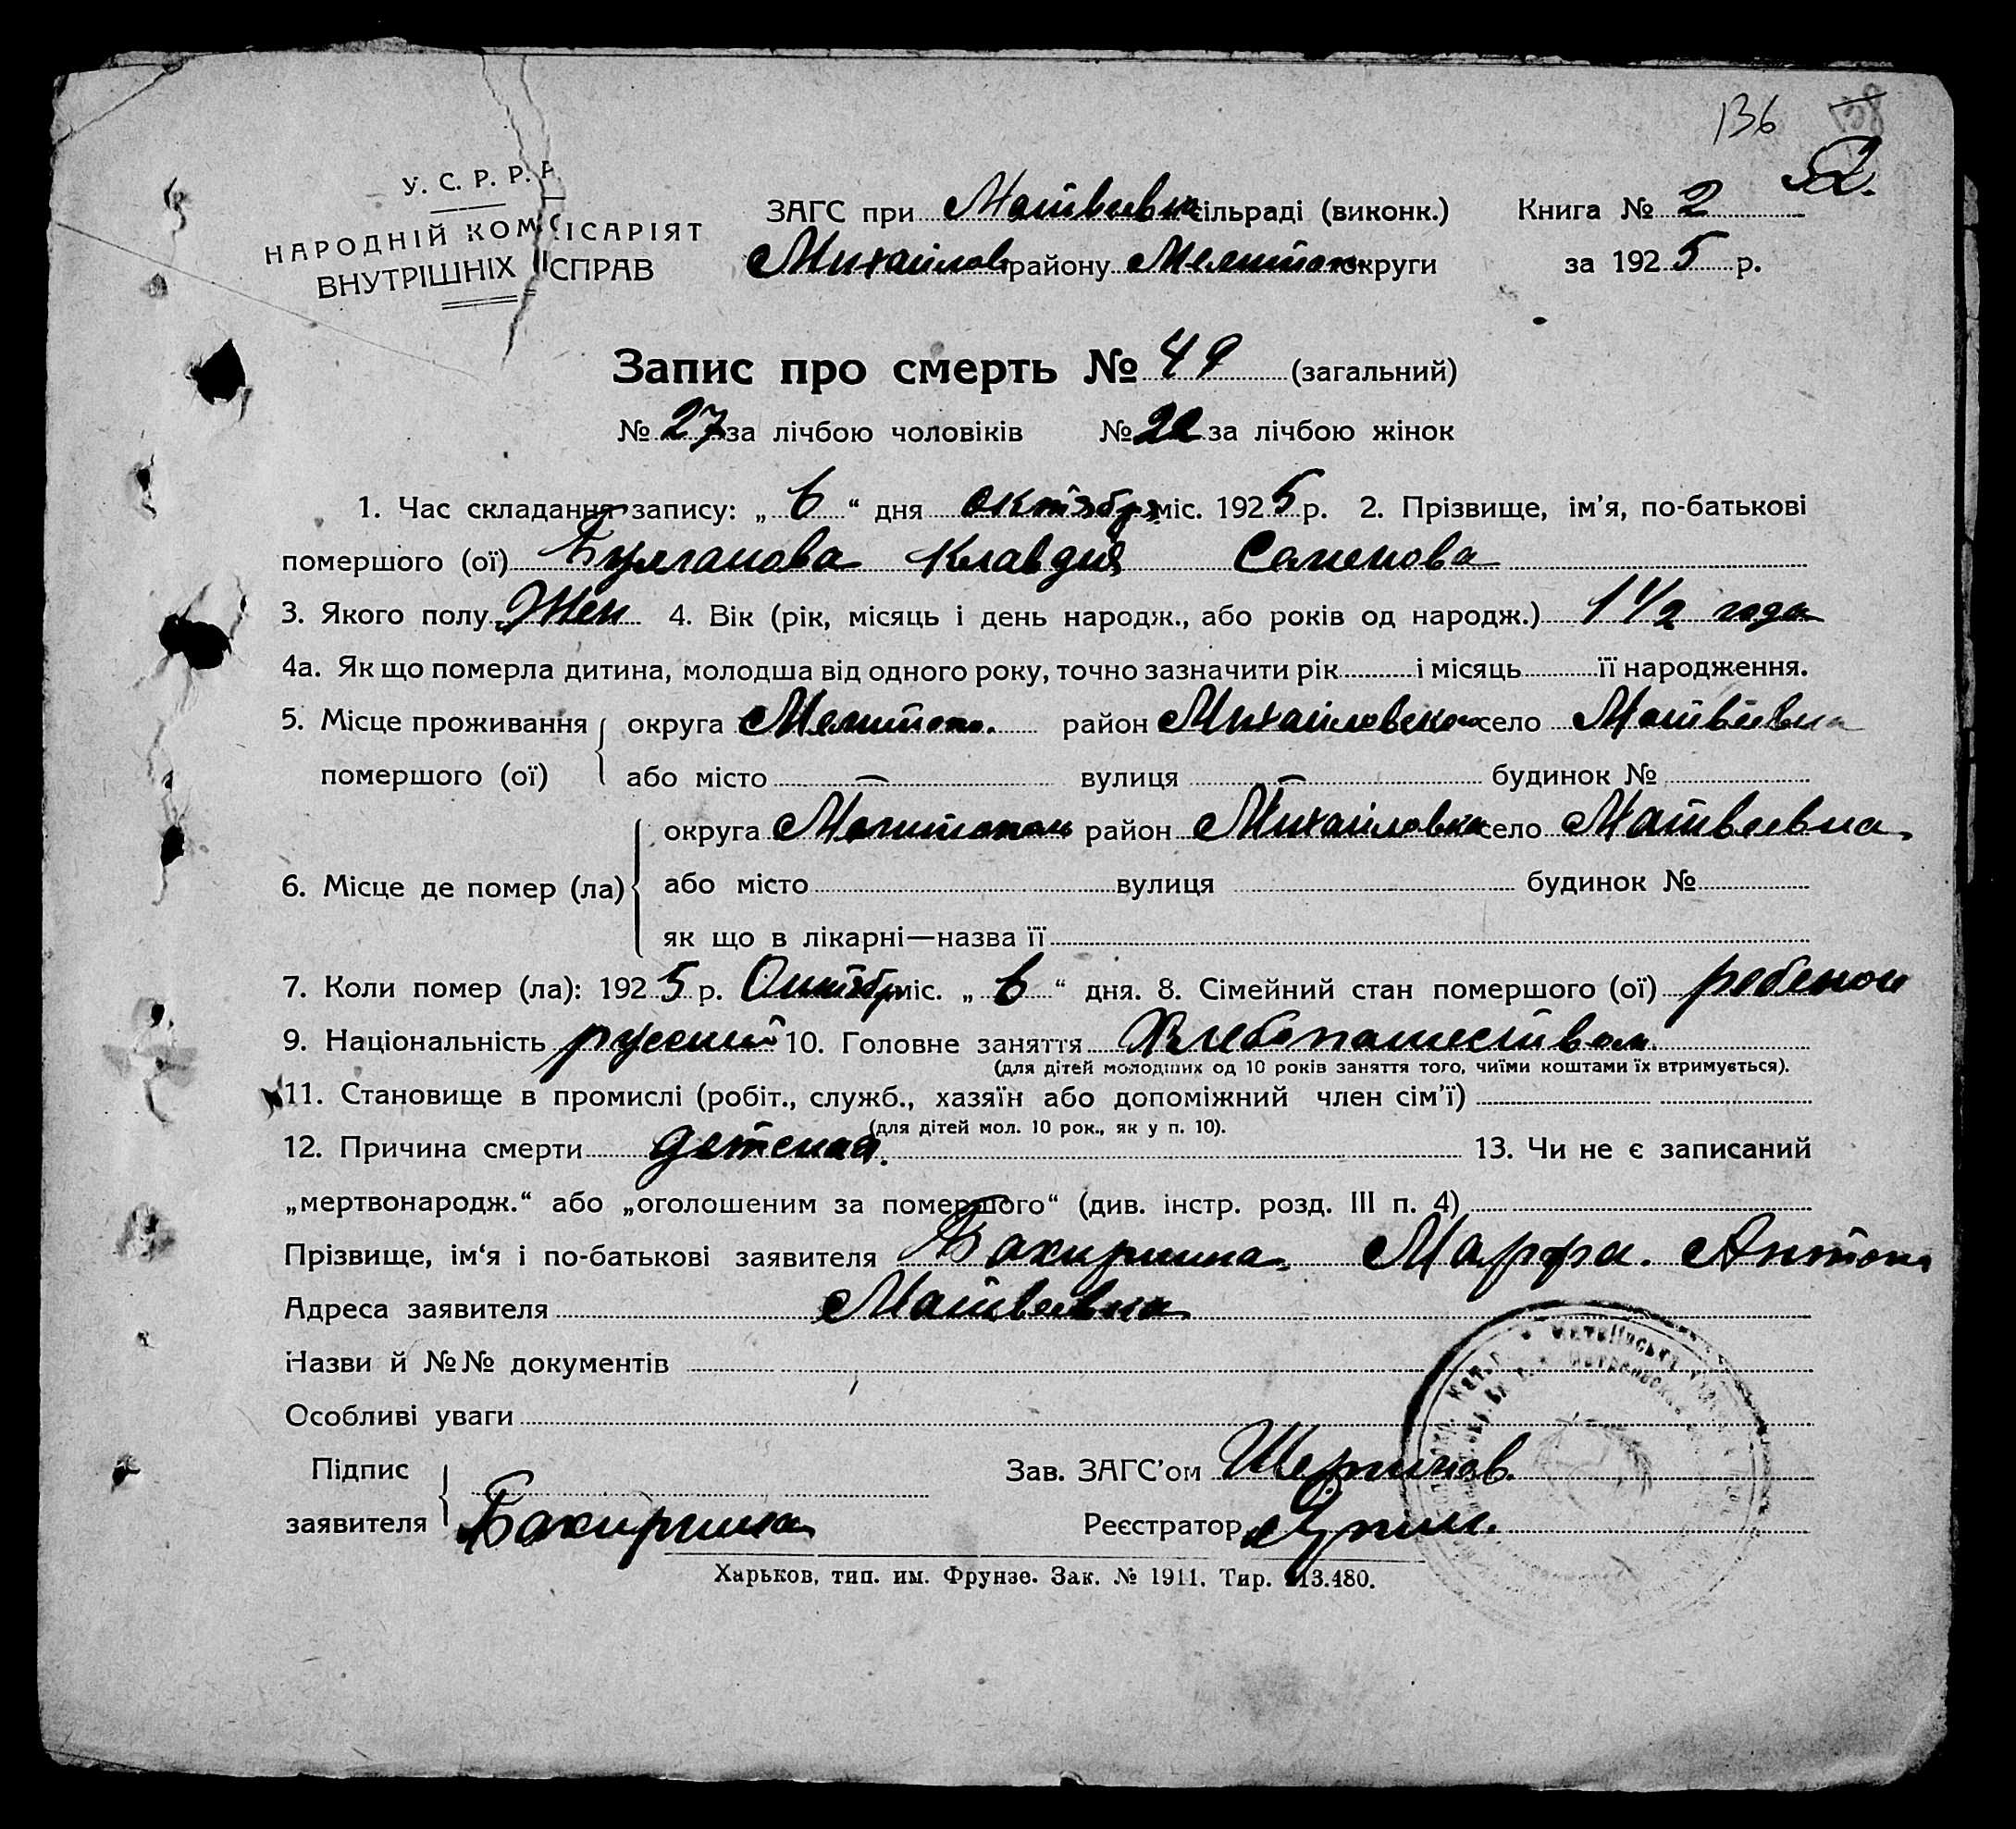 136
52.
У. С. Р. Р.
НАРОДНІЙ КОМІСАРІЯТ
ВНУТРІШНІХ СПРАВ
ЗАГС при Матвеевка сільраді (виконк.) Книга № 2
Михайлов району Мелитоп. округи за 1925 р.
Запис про смерть № 49 (загальний)
№ 27 за лічбою чоловіків № 22 за лічбою жінок
1. Час складання запису: „ 6 “ дня октября міс. 1925 р. 2. Прізвище, ім'я, по-батькові
помершого (ої) Булганова Клавдия Семенова
3. Якого полу Жен 4. Вік (рік, місяць і день народж., або років од народж.) 1 1/2 года
4а. Як що померла дитина, молодша від одного року, точно зазначити рік і місяць її народження.
5. Місце проживання округа Мелитоп. район Михайловского село Матвеевка
помершого (ої) або місто — вулиця — будинок №
округа Мелитополь район Михайловка село Матвеевка
6. Місце де помер (ла) або місто вулиця будинок №
як що в лікарні—назва її
7. Коли помер (ла): 1925 р. Октябр міс. „ 6 “ дня. 8. Сімейний стан помершого (ої) ребенок
9. Національність русский 10. Головне заняття Хлебопашеством
(для дітей молодших од 10 років заняття того, чиїми коштами їх втримується).
11. Становище в промислі (робіт., служб., хазяїн або допоміжний член сім'ї)
(для дітей мол. 10 рок., як у п. 10).
12. Причина смерти детская. 13. Чи не є записаний
„мертвонародж.“ або „оголошеним за помершого“ (див. інстр. розд. III п. 4)
Прізвище, ім'я і по-батькові заявителя Марфа. Антон
Адреса заявителя Матвеевка
Назви й №№ документів
Особливі уваги
Підпис Зав. ЗАГС'ом
заявителя Реєстратор
Харьков, тип. им. Фрунзе. Зак. № 1911. Тир. 213.480.